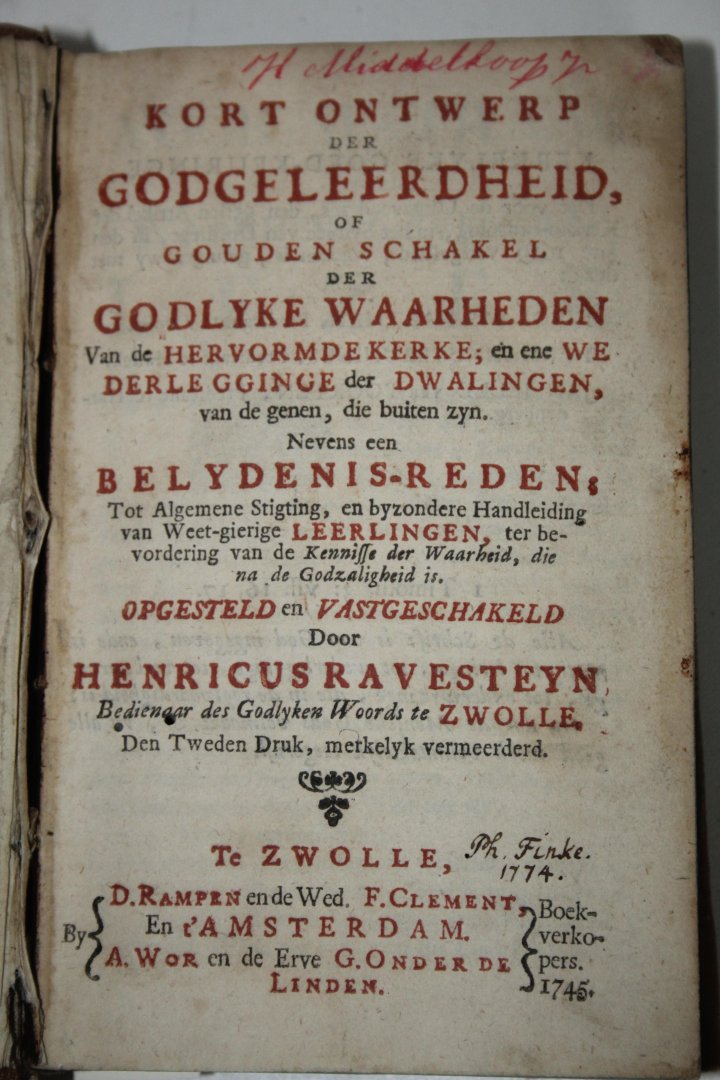 H Middelkoop Jr
KORT ONTWERP
DER
GODGELEERDHEID,
OF
GOUDEN SCHAKEL
DER
GODLYKE WAARHEDEN
Van de HERVORMDE KERKE; en ene WE
DERLEGGINGE der DWALINGEN,
van de genen, die buiten zyn.
Nevens een
BELYDENIS-REDEN;
Tot Algemene Stigting, en byzondere Handleiding
van Weet-gierige LEERLINGEN, ter be-
vordering van de Kennisse der Waarheid, die
na de Godzaligheid is.
OPGESTELD en VASTGESCHAKELD
Door
HENRICUS RAVESTEYN,
Bedienaar des Godlyken Woords te ZWOLLE.
Den Tweden Druk, merkelyk vermeerderd.
Te ZWOLLE,
Ph. Finke.
1774.
By
D. RAMPEN en de Wed. F. CLEMENT,
En t'AMSTERDAM.
A. WOR en de Erve G. ONDER DE
LINDEN.
Boek-
verko-
pers.
1745.